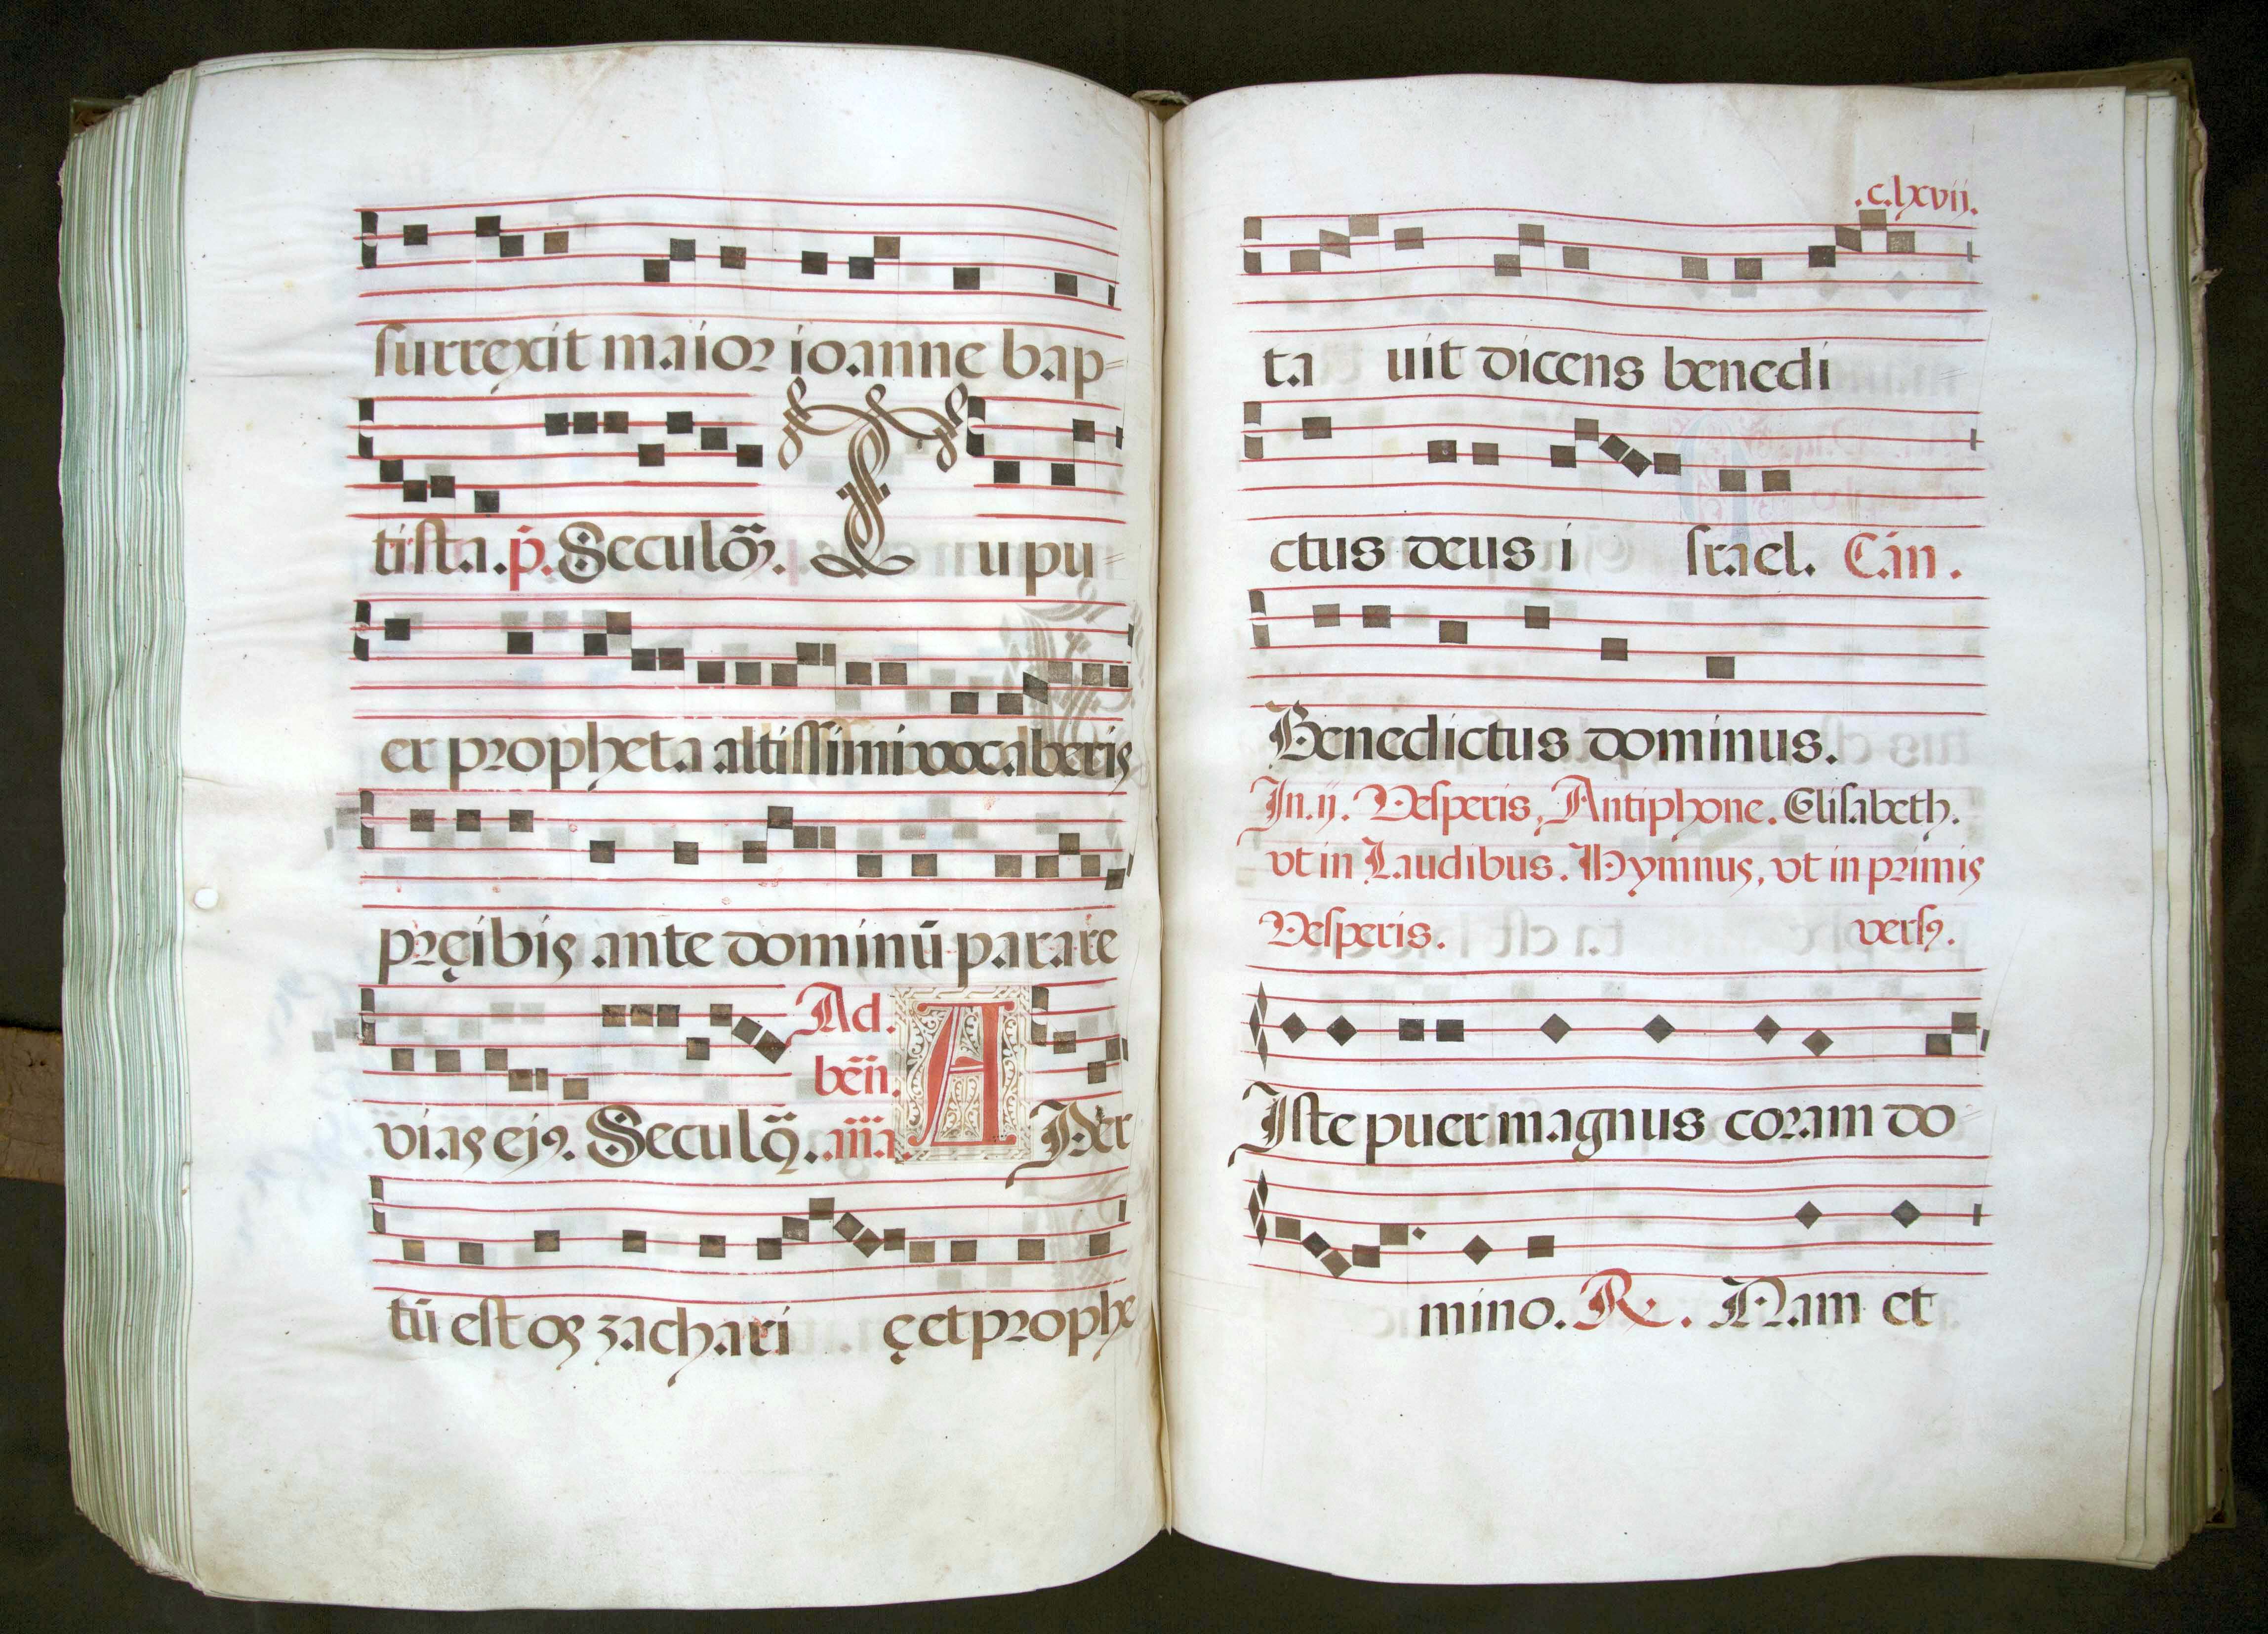 surrexit maior ioanne bap=
tista. p̄. Seculoꝝ̄. Tu pu=
er propheta altissimi vocaberis
pręibis ante dominū parare
Ad.
bēn.
vias ejꝰ. Seculoꝝ̄. aña. APer
tū est os zachari ę et prophe
.c.lxvij.
ta uit dicens benedi
ctus deus i srael. Cān.
Benedictus dominus.
In.ij. Vesperis, Antiphone. Elisabeth.
vt in Laudibus. Hymnus, vt in primis
Vesperis. versꝰ.
Iste puer magnus coram do=
mino. ℟. Nam et